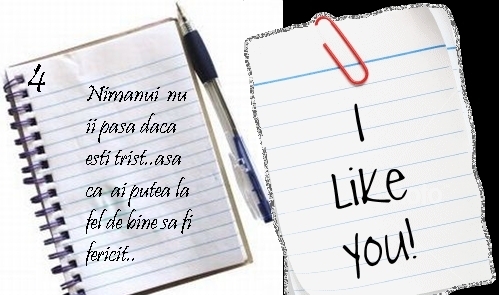 4
Nimanui nu
ii pasa daca
esti trist..asa
ca ai putea la
fel de bine sa fi
fericit..
I
Like
you!